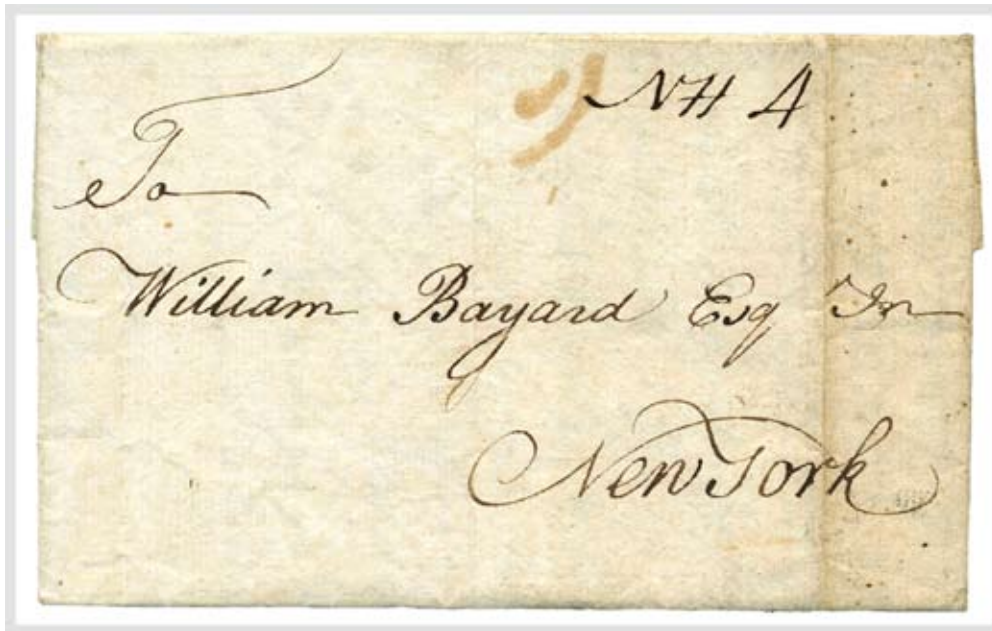 NH 4
To
William Bayard Esq In
New York